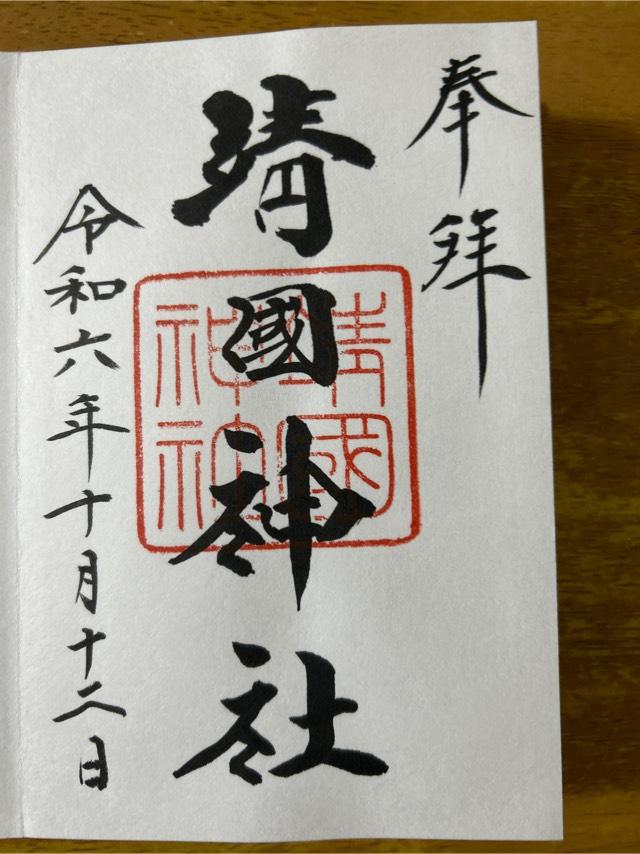 奉拝
靖國神社
靖國神社
令和六年十月十二日